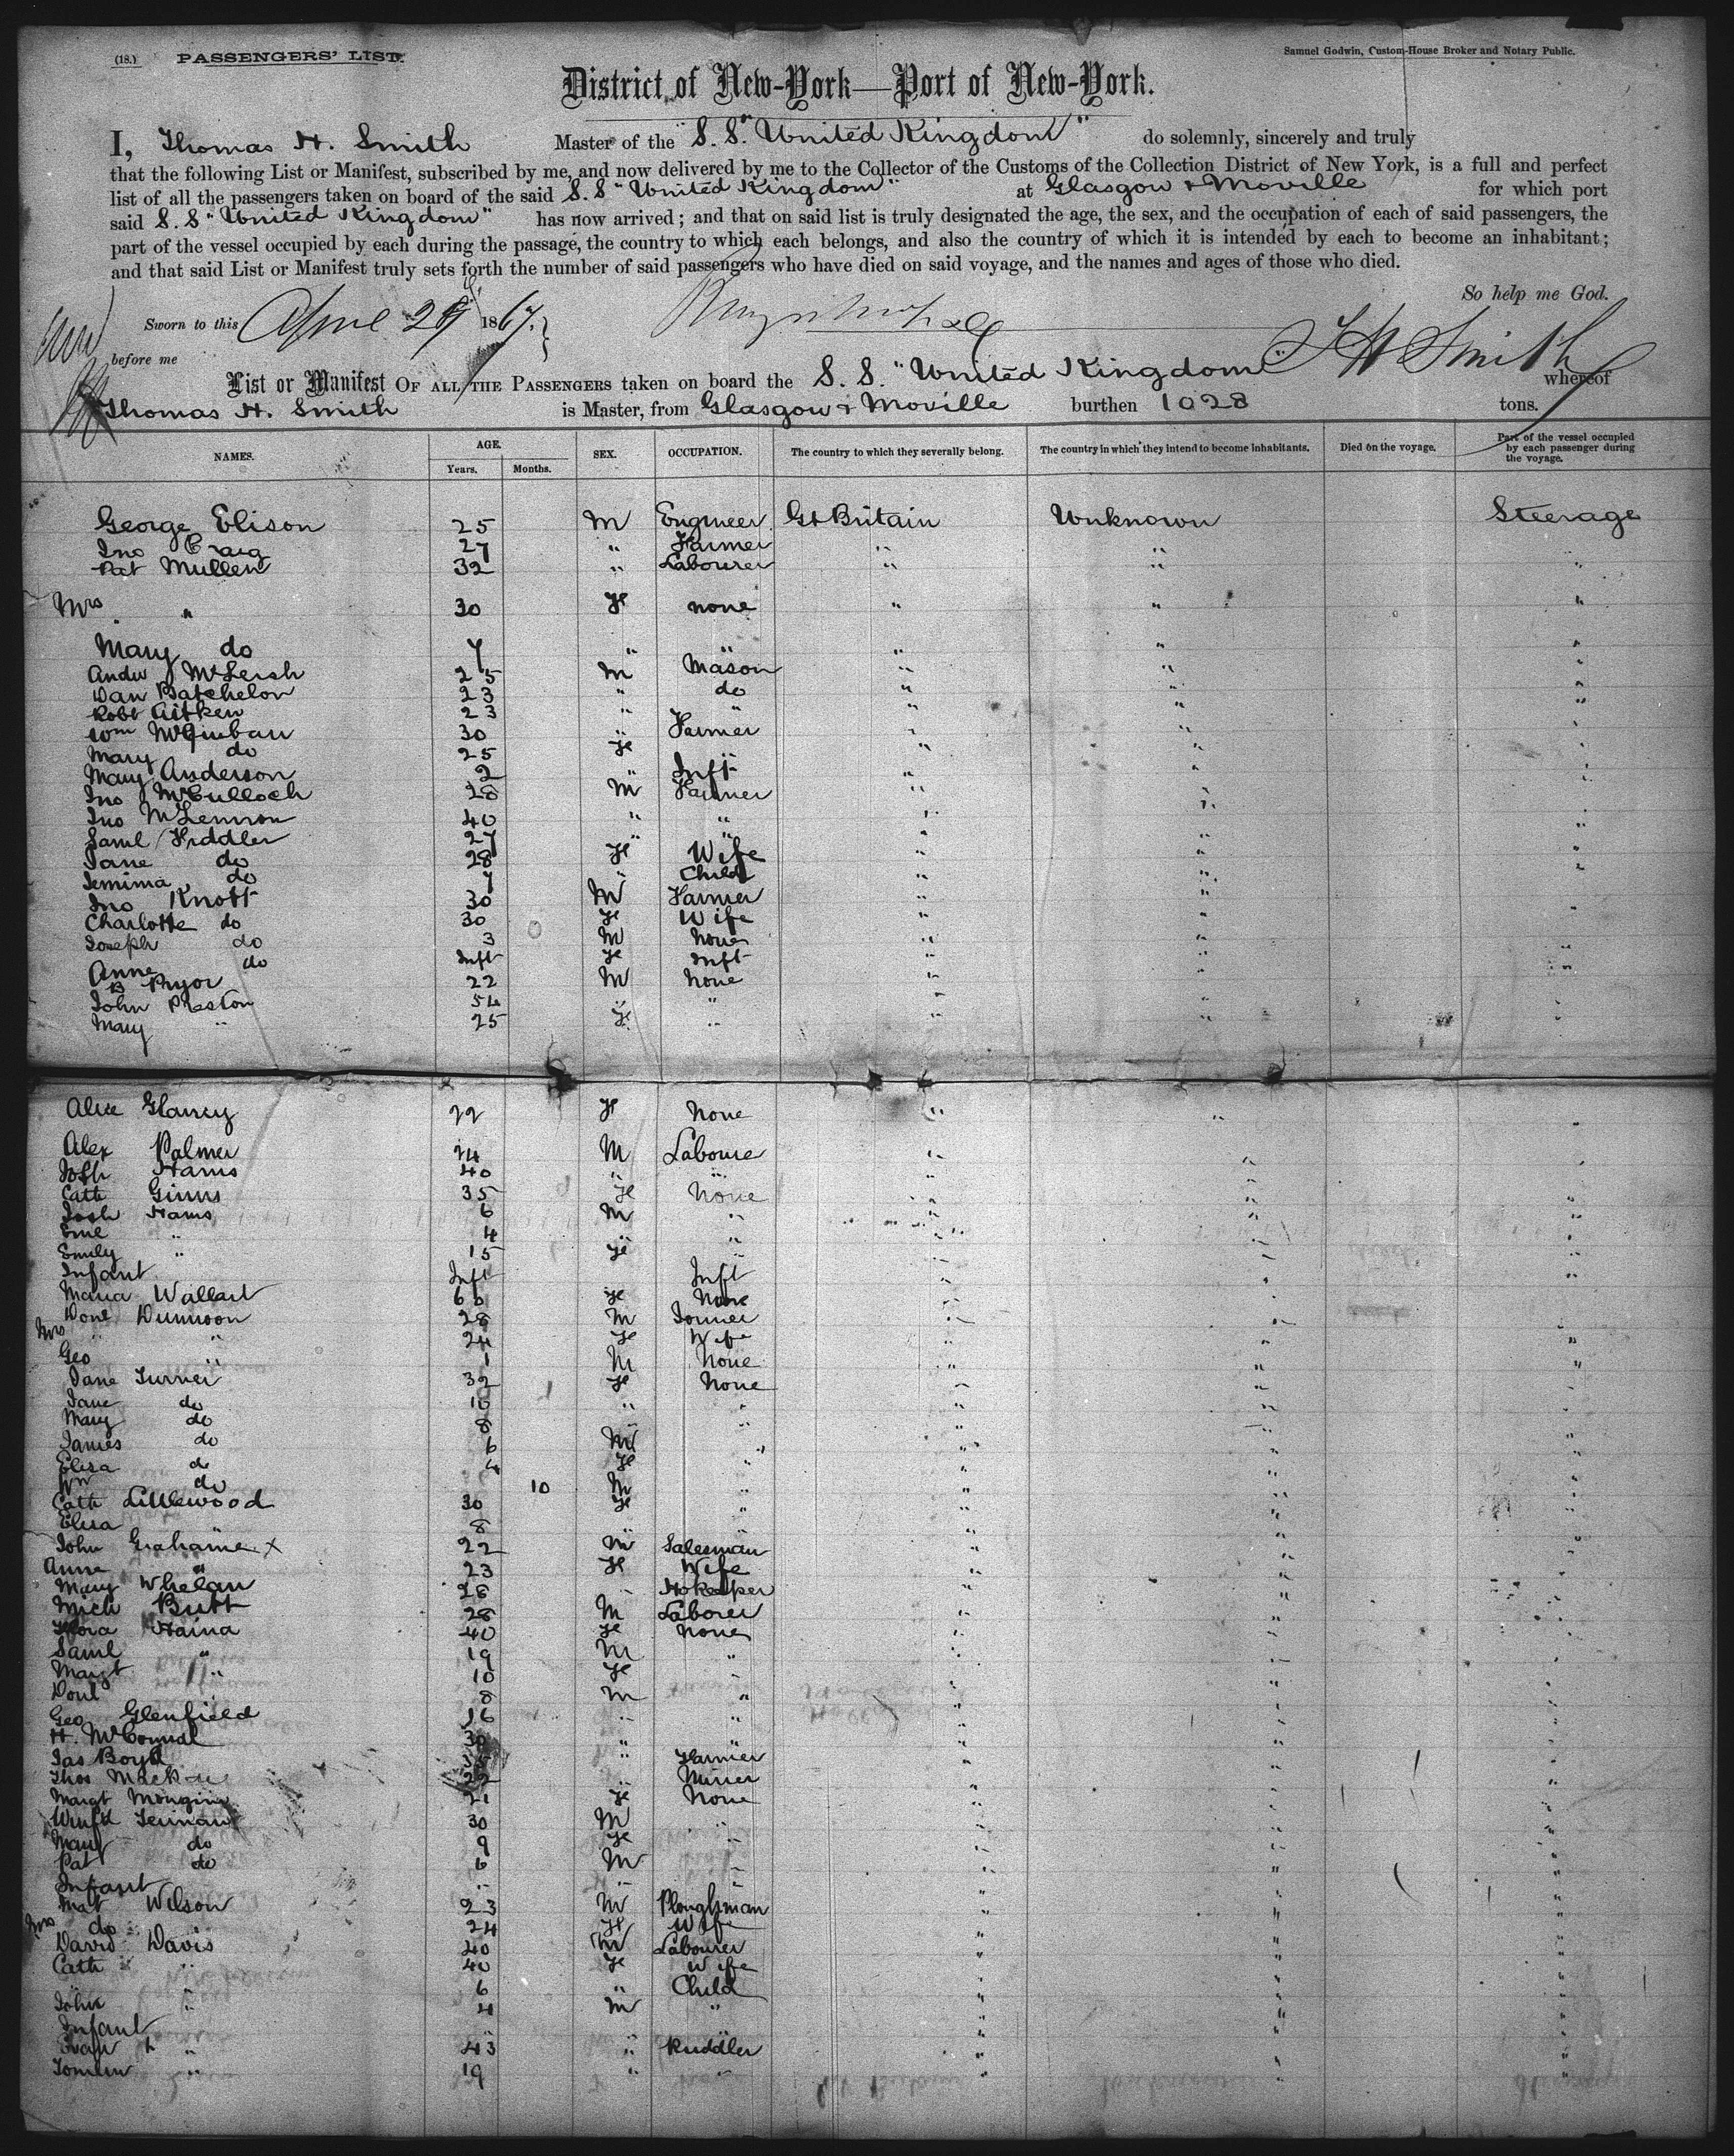 (18.) PASSENGERS' LIST.
Samuel Godwin, Custom-House Broker and Notary Public.
District of New-York—Port of New-York.
I, Thomas H. Smith Master of the S. S. "United Kingdom" do solemnly, sincerely and truly
that the following List or Manifest, subscribed by me, and now delivered by me to the Collector of the Customs of the Collection District of New York, is a full and perfect
list of all the passengers taken on board of the said S. S "United Kingdom" at Glasgow & Moville for which port
said S. S "United Kingdom" has now arrived; and that on said list is truly designated the age, the sex, and the occupation of each of said passengers, the
part of the vessel occupied by each during the passage, the country to which each belongs, and also the country of which it is intended by each to become an inhabitant;
and that said List or Manifest truly sets forth the number of said passengers who have died on said voyage, and the names and ages of those who died.
So help me God.
Sworn to this April 29 1867.
before me T H Smith
List or Manifest OF ALL THE PASSENGERS taken on board the S. S. "United Kingdom" whereof
Thomas H. Smith is Master, from Glasgow & Moville burthen 1028 tons.
NAMES. AGE. Years. Months. SEX. OCCUPATION. The country to which they severally belong. The country in which they intend to become inhabitants. Died on the voyage. Part of the vessel occupied by each passenger during the voyage.
George Elison 25 M Engineer Gt Britain Unknown Steerage
Jno Craig 27 " Farmer " "
Pat Mullen 32 " Labourer " " "
Mrs " 30 Fe none " " "
Mary do 7 " " " " "
Andw McLeish 25 M Mason " " "
Dan Batchelor 23 " do " " "
Robt Aitken 23 " " " " "
Wm 30 " Farmer " "
Mary do 25 Fe " " "
Mary Anderson 2 Inft " " "
Jno McCulloch 28 M Farmer " "
Jno McLennon 40 " " " " "
Saml Fiddler 27 " " " " "
Jane do 28 Fe Wife " " "
Jemima do 7 " Child " "
Jno Knott 30 M Farmer " "
Charlotte do 30 Fe Wife " " "
Joseph do 3 M None " "
Anne do Inft Fe Inft " " "
B Pryor 22 M None " "
John Preston 54 " " " " "
Mary " 25 Fe " " " "
Alice Glancy 22 Fe None " " "
Alex Palmer 24 M Laboure " " "
Joph Hams 40 " " " "
Cath Ginns 35 Fe None " " "
Josh Hams 6 M " " " "
" 4 " " " "
Emily " 15 Fe " " " "
Infant Inft Inft " " "
Maria Wallart 60 Fe None " "
Dond Dunnoon 28 M Joiner " "
Mrs " " 24 Fe Wife " " "
Geo " 1 M None " " "
Jane Turner 32 Fe None " "
Jane do 10 " " " " "
Mary do 8 " " "
James do 6 M " " " "
Elisa do 4 Fe " " " "
Wm do 10 M " " " "
Cath Littlewood 30 Fe " " " "
Elisa 8 " "
John Grahame x 22 M Salesman " " "
Anne " 23 Fe Wife " " "
Mary Whelan 28 " Hokeeper " " "
Mich Butt 28 M Laborer " " "
Flora Haina 40 Fe None " " "
Saml " 19 M " " " "
Margt " 10 Fe " " " "
Donl 8 M " " " "
Geo Glenfield 16 " " " " "
H. McConnal 30 " " " " "
Jas Boyd " Farmer " " "
Thos 22 " Miner " " "
Margt 21 Fe None " " "
30 M " " " "
Mary do 9 Fe " " " "
Pat do 6 M " " " "
Infant " " " " "
Mat Wilson 23 M Ploughman " " "
Mrs do 24 Fe Wife " " "
David Davis 40 M Labourer " " "
Cath " 40 Fe Wife " " "
" " 6 " Child " " "
John " 4 M " " " "
Infant " " " "
" 43 " Ruddler " " "
" 19 " " " " "